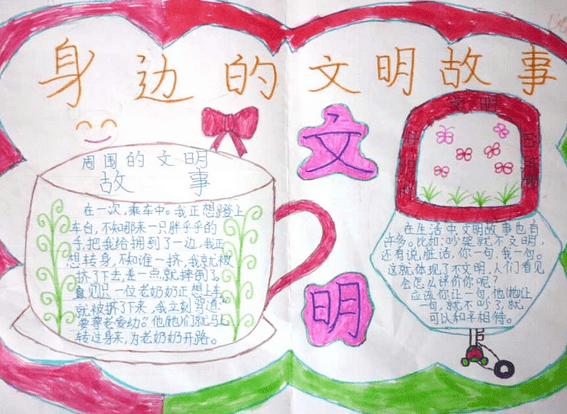 身边的文明故事
周围的文明
故事
在一次,乘车中。我正想蹬上
车台,不知那来一只胖乎乎的
手,把我给拥到了一边,我正
想转身,不知谁一挤,我就被
挤下去,差一点,就摔倒了。
看见只一位老奶奶正想上车
就被挤了下来,我立刻
要尊老爱幼。"他们就马上
转过身来,为老奶奶开路。
文
明
文明
在生活中文明故事也有
许多。比如:吵架就不文明,
还有说,脏话,你一句,我一句。
这就,体现了不文明,人们看见
会怎么评价你呢?
应该你让一句,他让
一句,就不吵了,就
可以和平相待。